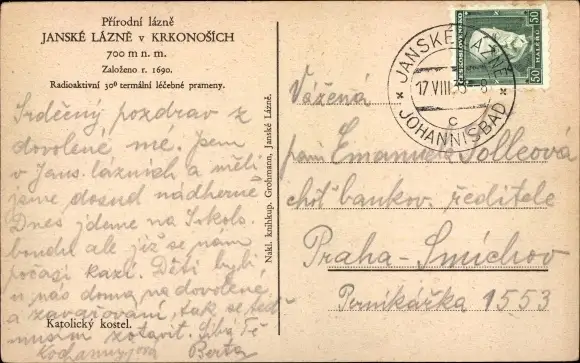 Přírodní lázně
JANSKÉ LÁZNĚ v KRKONOŠÍCH
700 m n. m.
Založeno r. 1690.
Radioaktivní 30° termální léčebné prameny.
Srdečný pozdrav z
dovolené mé. Jsem
v Jans. lázních a měli
jsme dosud nádherně
Dnes jdeme na Sokols.
boudu ale již se nám
počasí kazí. Děti byly
u nás doma na dovolené,
a zavařování, tak se teď
musím zotavit. Líbá Tě
Berta
Katolický kostel.
Nákl. knihkup. Grohmann, Janské Lázně.
JANSKÉ LÁZNĚ
17 VIII 35
C
JOHANNISBAD
ČESKOSLOVENSKO
50
HALÉŘŮ
50
Vážená
paní Emanuela Tolleová
choť bankov. ředitele
Praha-Smíchov
Perníkářka 1553